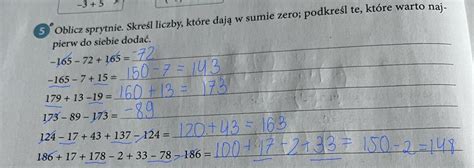 -3+5
5* Oblicz sprytnie. Skreśl liczby, które dają w sumie zero; podkreśl te, które warto naj-
pierw do siebie dodać.
-165 - 72 + 165 = -72
-165 - 7 + 15 = 150 - 7 = 143
179 + 13 - 19 = 160 + 13 = 173
173 - 89 - 173 = -89
124 - 17 + 43 + 137 - 124 = 120 + 43 = 163
186 + 17 + 178 - 2 + 33 - 78 - 186 = 100 + 17 - 2 + 33 = 150 - 2 = 148